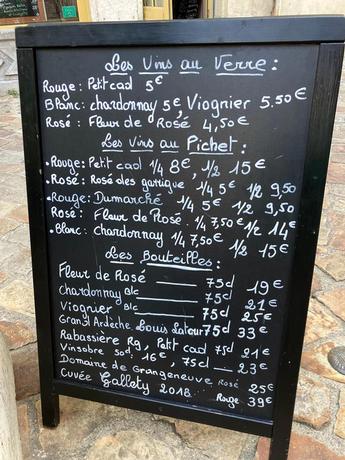 Les Vins au Verre :
Rouge : Petit cad 5€
Blanc : chardonnay 5€, Viognier 5,50€
Rosé : Fleur de Rosé 4,50€
Les Vins au Pichet :
• Rouge : Petit cad 1/4 8€, 1/2 15€
• Rosé : Rosé des garrigue 1/4 5€ 1/2 9,50
• Rouge : Dumarché 1/4 5€ 1/2 9,50
Rosé : Fleur de Rosé 1/4 7,50€ 1/2 14€
• Blanc : chardonnay 1/4 7,50€ 1/2 15€
Les Bouteilles :
Fleur de Rosé 75cl 19€
Chardonnay Blc 75cl 21€
Viognier Blc 75cl 25€
Grand Ardèche Louis Latour 75cl 33€
Rabassière Rg, Petit cad 75cl 21€
Vinsobre 16€, 75cl 23€
Domaine de Grangeneuve Rosé 25€
Cuvée Gallety 2018 Rouge 39€